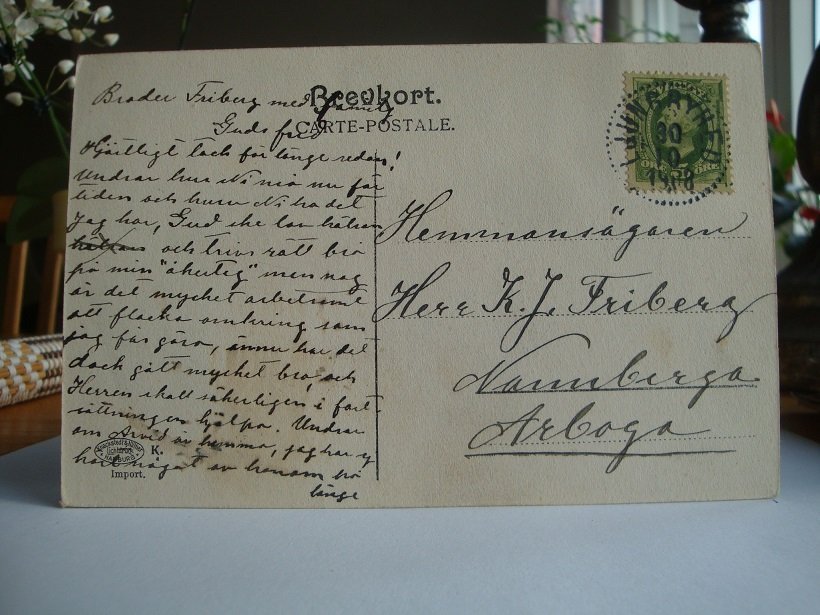 Brevkort.
CARTE-POSTALE.
Broder Friberg med familj
Guds frid
Hjärtligt tack för länge sedan!
Undrar huru Ni må nu för
tiden och huru Ni ha det
Jag har, Gud ske lov hälsan
och trivs rätt bra
på min "åkerteg" men nog
är det mycket arbetsamt
att flacka omkring som
jag får göra, ännu har det
dock gått mycket bra, och
Herren skall säkerligen i fort
sättningen hjälpa. Undrar
om Arvid är hemma, jag har ej
hört något av honom på
länge
K.
HAMBURG
Import.
30
10
Hemmansägaren
Herr K. J. Friberg
Nannberga
Arboga